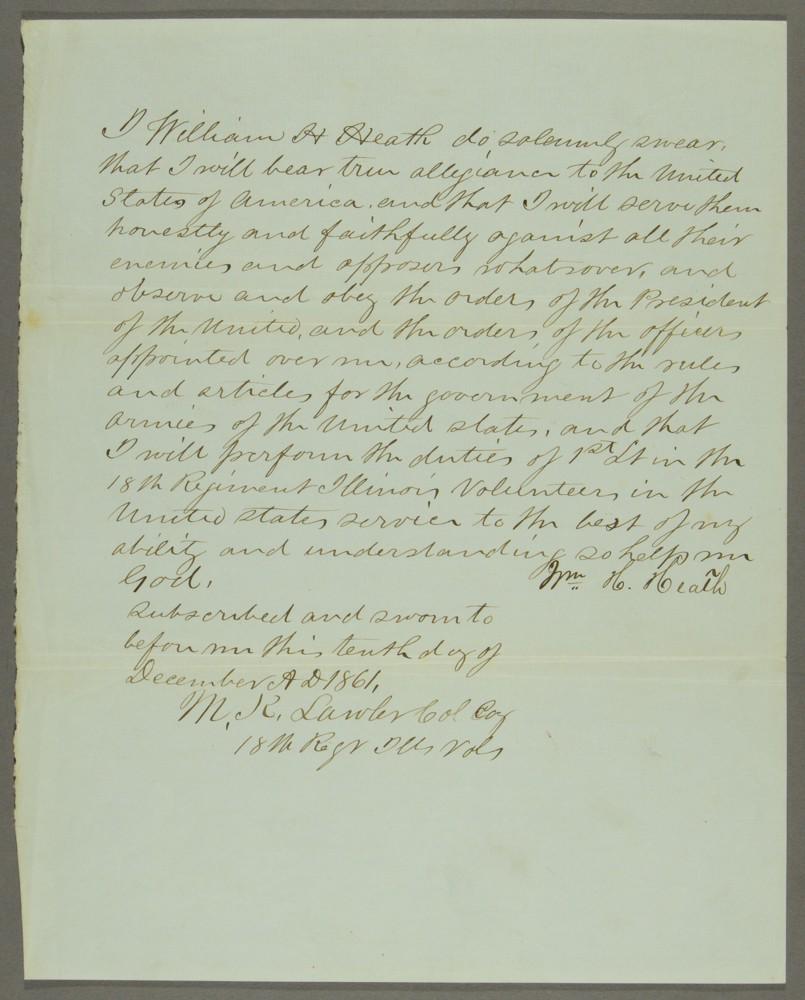 I William H Heath do solemnly swear,
that I will bear true allegiance to the United
States of America, and that I will serve them
honestly and faithfully against all their
enemies and opposers whatsover, and
observe and obey the orders of the President
of the United, and the orders of the officers
appointed over me, according to the rules
and articles for the government of the
armies of the United states, and that
I will perform the duties of 1st Lt in the
18th Regiment Illinois Volunteers in the
United states service to the best of my
ability and understanding so help me
God, Wm H. Heath
subscribed and sworn to
before me this tenth day of
December A D 1861,
M. K. Lawler Col Com
18th Regt Ills Vols